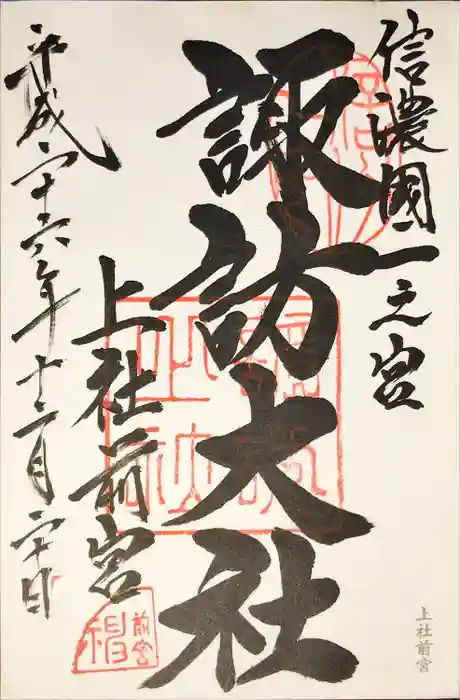 信濃國一之宮
諏訪大社
上社前宮
平成二十六年十二月二十日
前宮
上社前宮